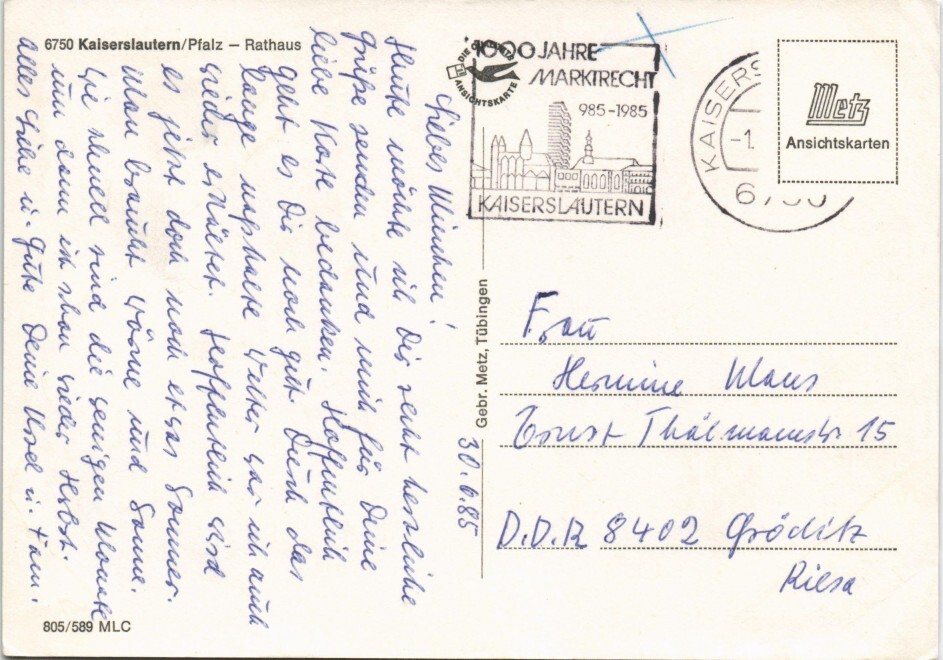 6750 Kaiserslautern/Pfalz – Rathaus
DIE
ANSICHTSKARTE
1000 JAHRE
MARKTRECHT
985-1985
KAISERSLAUTERN
KAISERS
-1.
6750
Metz
Ansichtskarten
30.6.85
Liebes Minchen!
Heute möchte ich Dir recht herzliche
Grüße senden und mich für Deine
liebe Karte bedanken. Hoffentlich
geht es Dir noch gut. Durch das
lange naßkalte Wetter war ich auch
wieder erkältet. Hoffentlich wird
es jetzt doch noch etwas Sommer.
Man braucht Wärme und Sonne.
Wie schnell sind die wenigen Monate
um dann ist schon wieder Herbst.
Alles Liebe u. Gute Deine Ursel u. Fam.
Gebr. Metz, Tübingen
Frau
Hermine Maus
Ernst Thälmannstr 15
D.D.R 8402 Gröditz
Riesa
805/589 MLC